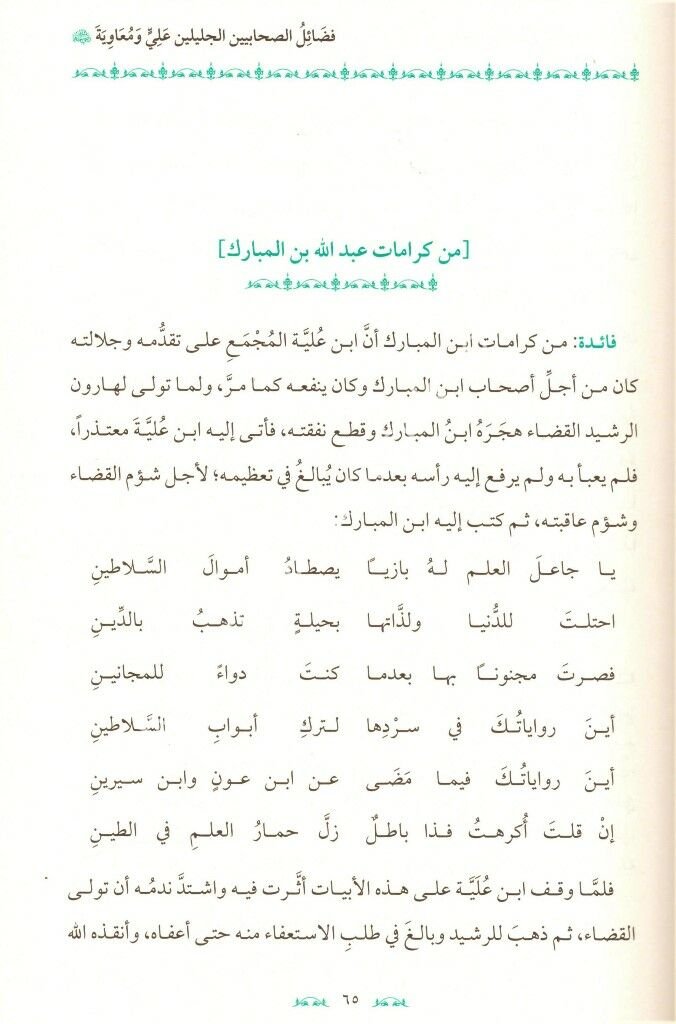 فضَائِلُ الصحابيين الجليلين عَلِيٍّ وَمُعَاوِيَةَ
[من كرامات عبد الله بن المبارك]
فائدة: من كرامات ابن المبارك أنَّ ابن عُليَّة المُجْمَعِ على تقدُّمه وجلالته
كان من أجلِّ أصحاب ابن المبارك وكان ينفعه كما مرَّ، ولما تولى لهارون
الرشيد القضاء هجَرَهُ ابنُ المبارك وقطع نفقته، فأتى إليه ابن عُليَّةَ معتذراً،
فلم يعبأ به ولم يرفع إليه رأسه بعدما كان يُبالغُ في تعظيمه؛ لأجل شؤم القضاء
وشؤم عاقبته، ثم كتب إليه ابن المبارك:
يا جاعلَ العلم لهُ بازياً يصطادُ أموالَ السَّلاطينِ
احتلتَ للدُّنيا ولذَّاتها بحيلةٍ تذهبُ بالدِّينِ
فصرتَ مجنوناً بها بعدما كنتَ دواءً للمجانينِ
أينَ رواياتُكَ في سرْدِها لتركِ أبوابِ السَّلاطينِ
أينَ رواياتُكَ فيما مَضَى عن ابن عونٍ وابن سيرينِ
إنْ قلتَ أُكرهتُ فذا باطلٌ زلَّ حمارُ العلمِ في الطينِ
فلمَّا وقف ابن عُلَيَّة على هذه الأبيات أثَّرت فيه واشتدَّ ندمُه أن تولى
القضاء، ثم ذهبَ للرشيد وبالغَ في طلبِ الاستعفاء منه حتى أعفاه، وأنقذه الله
٦٥